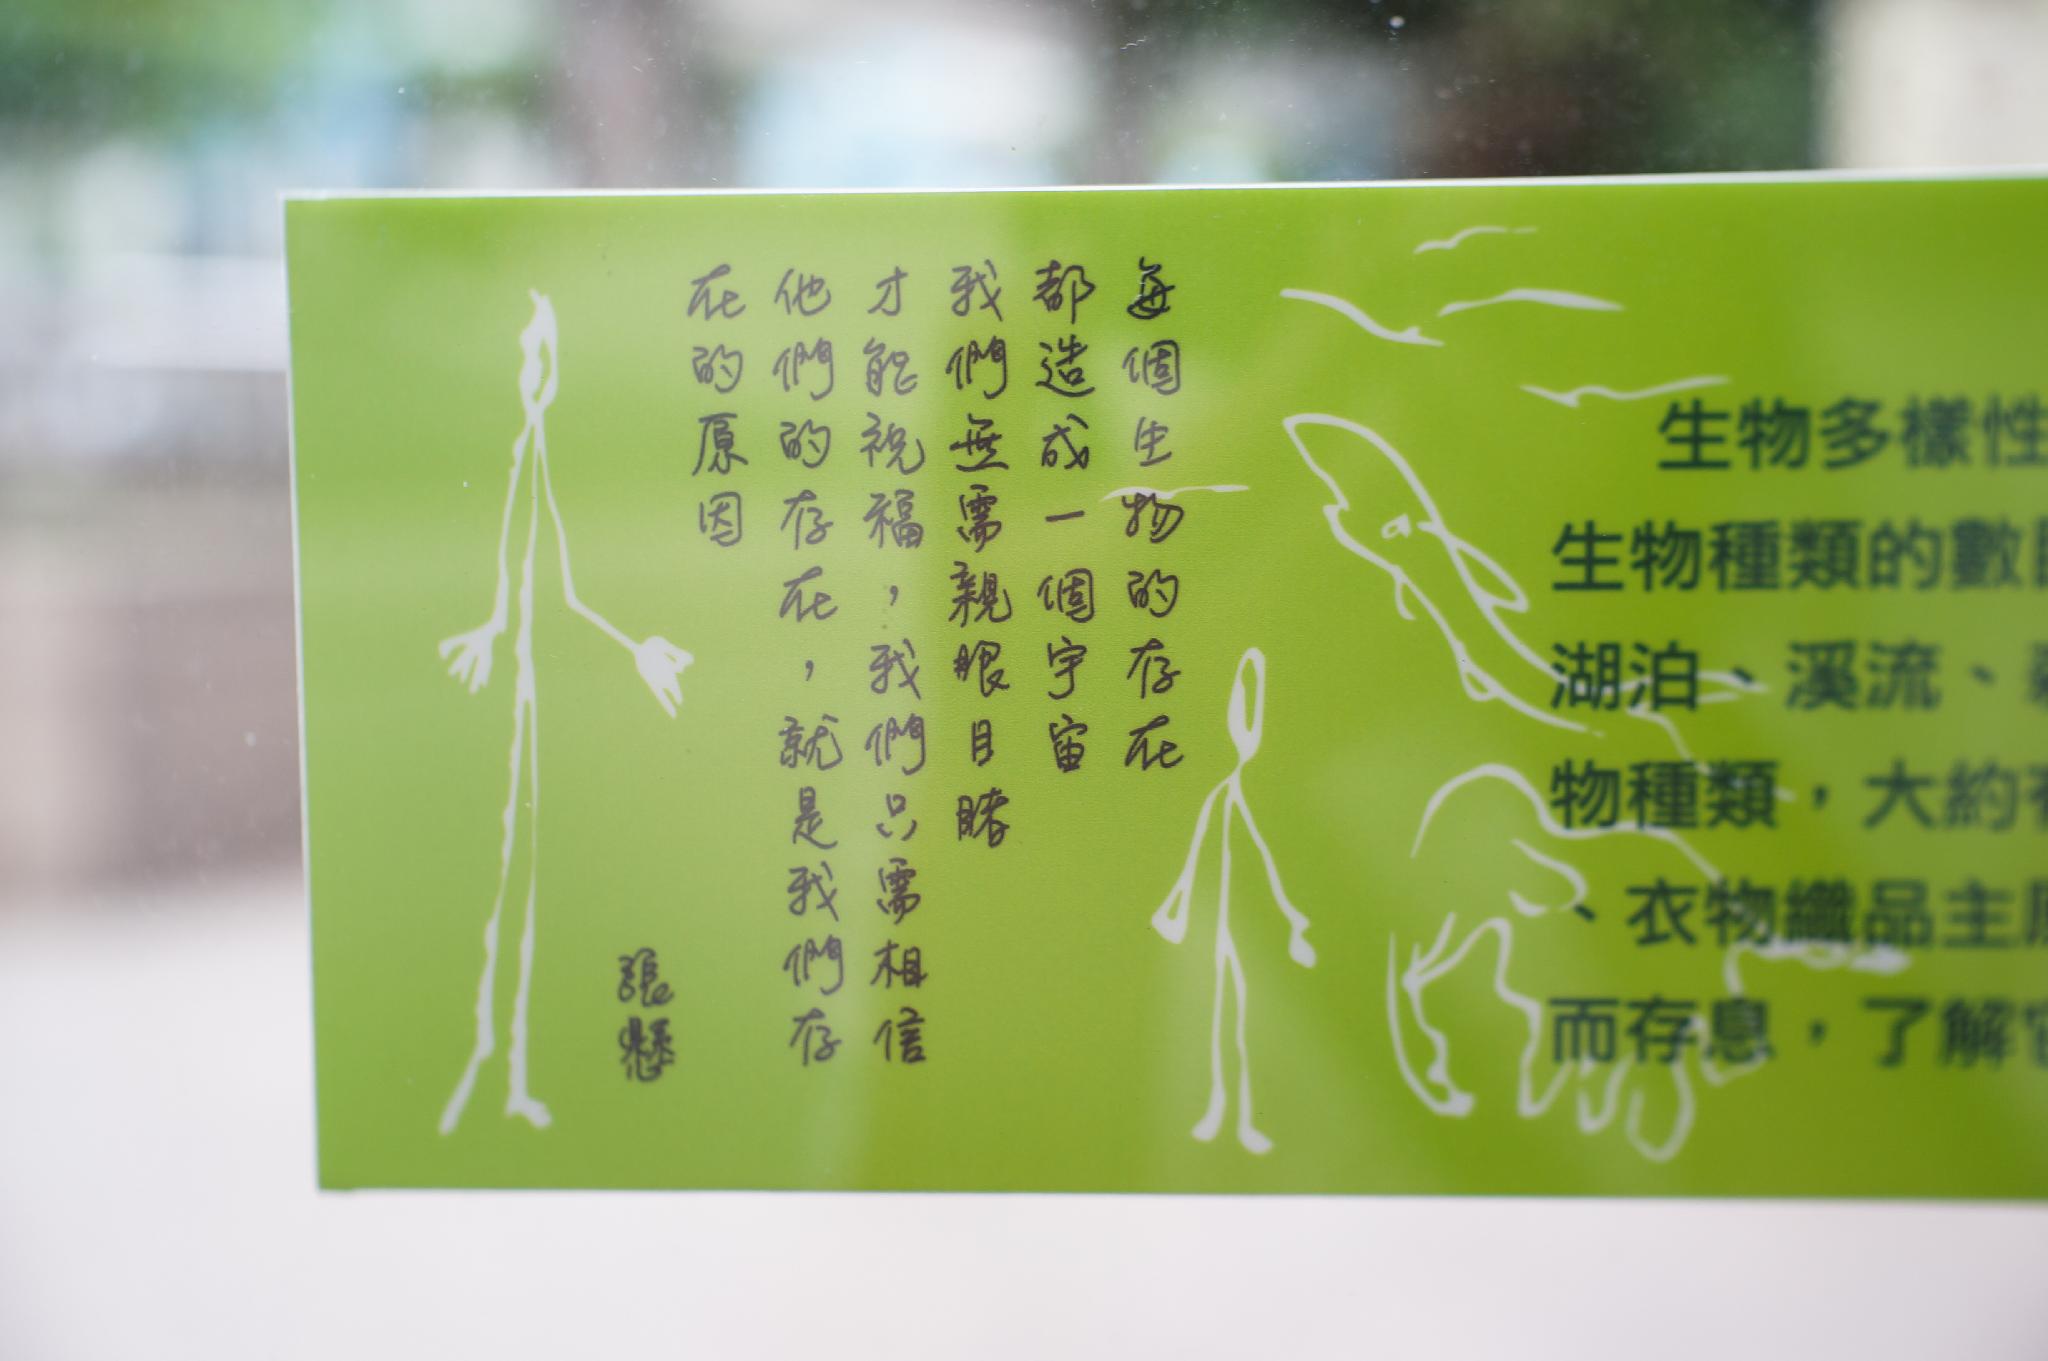 每個生物的存在
都造成一個宇宙
我們無需親眼目睹
才能祝福，我們只需相信
他們的存在，就是我們存
在的原因
張懸
生物多樣性
生物種類的數
湖泊、溪流、
物種類，大約
、衣物纖品主
而存息，了解